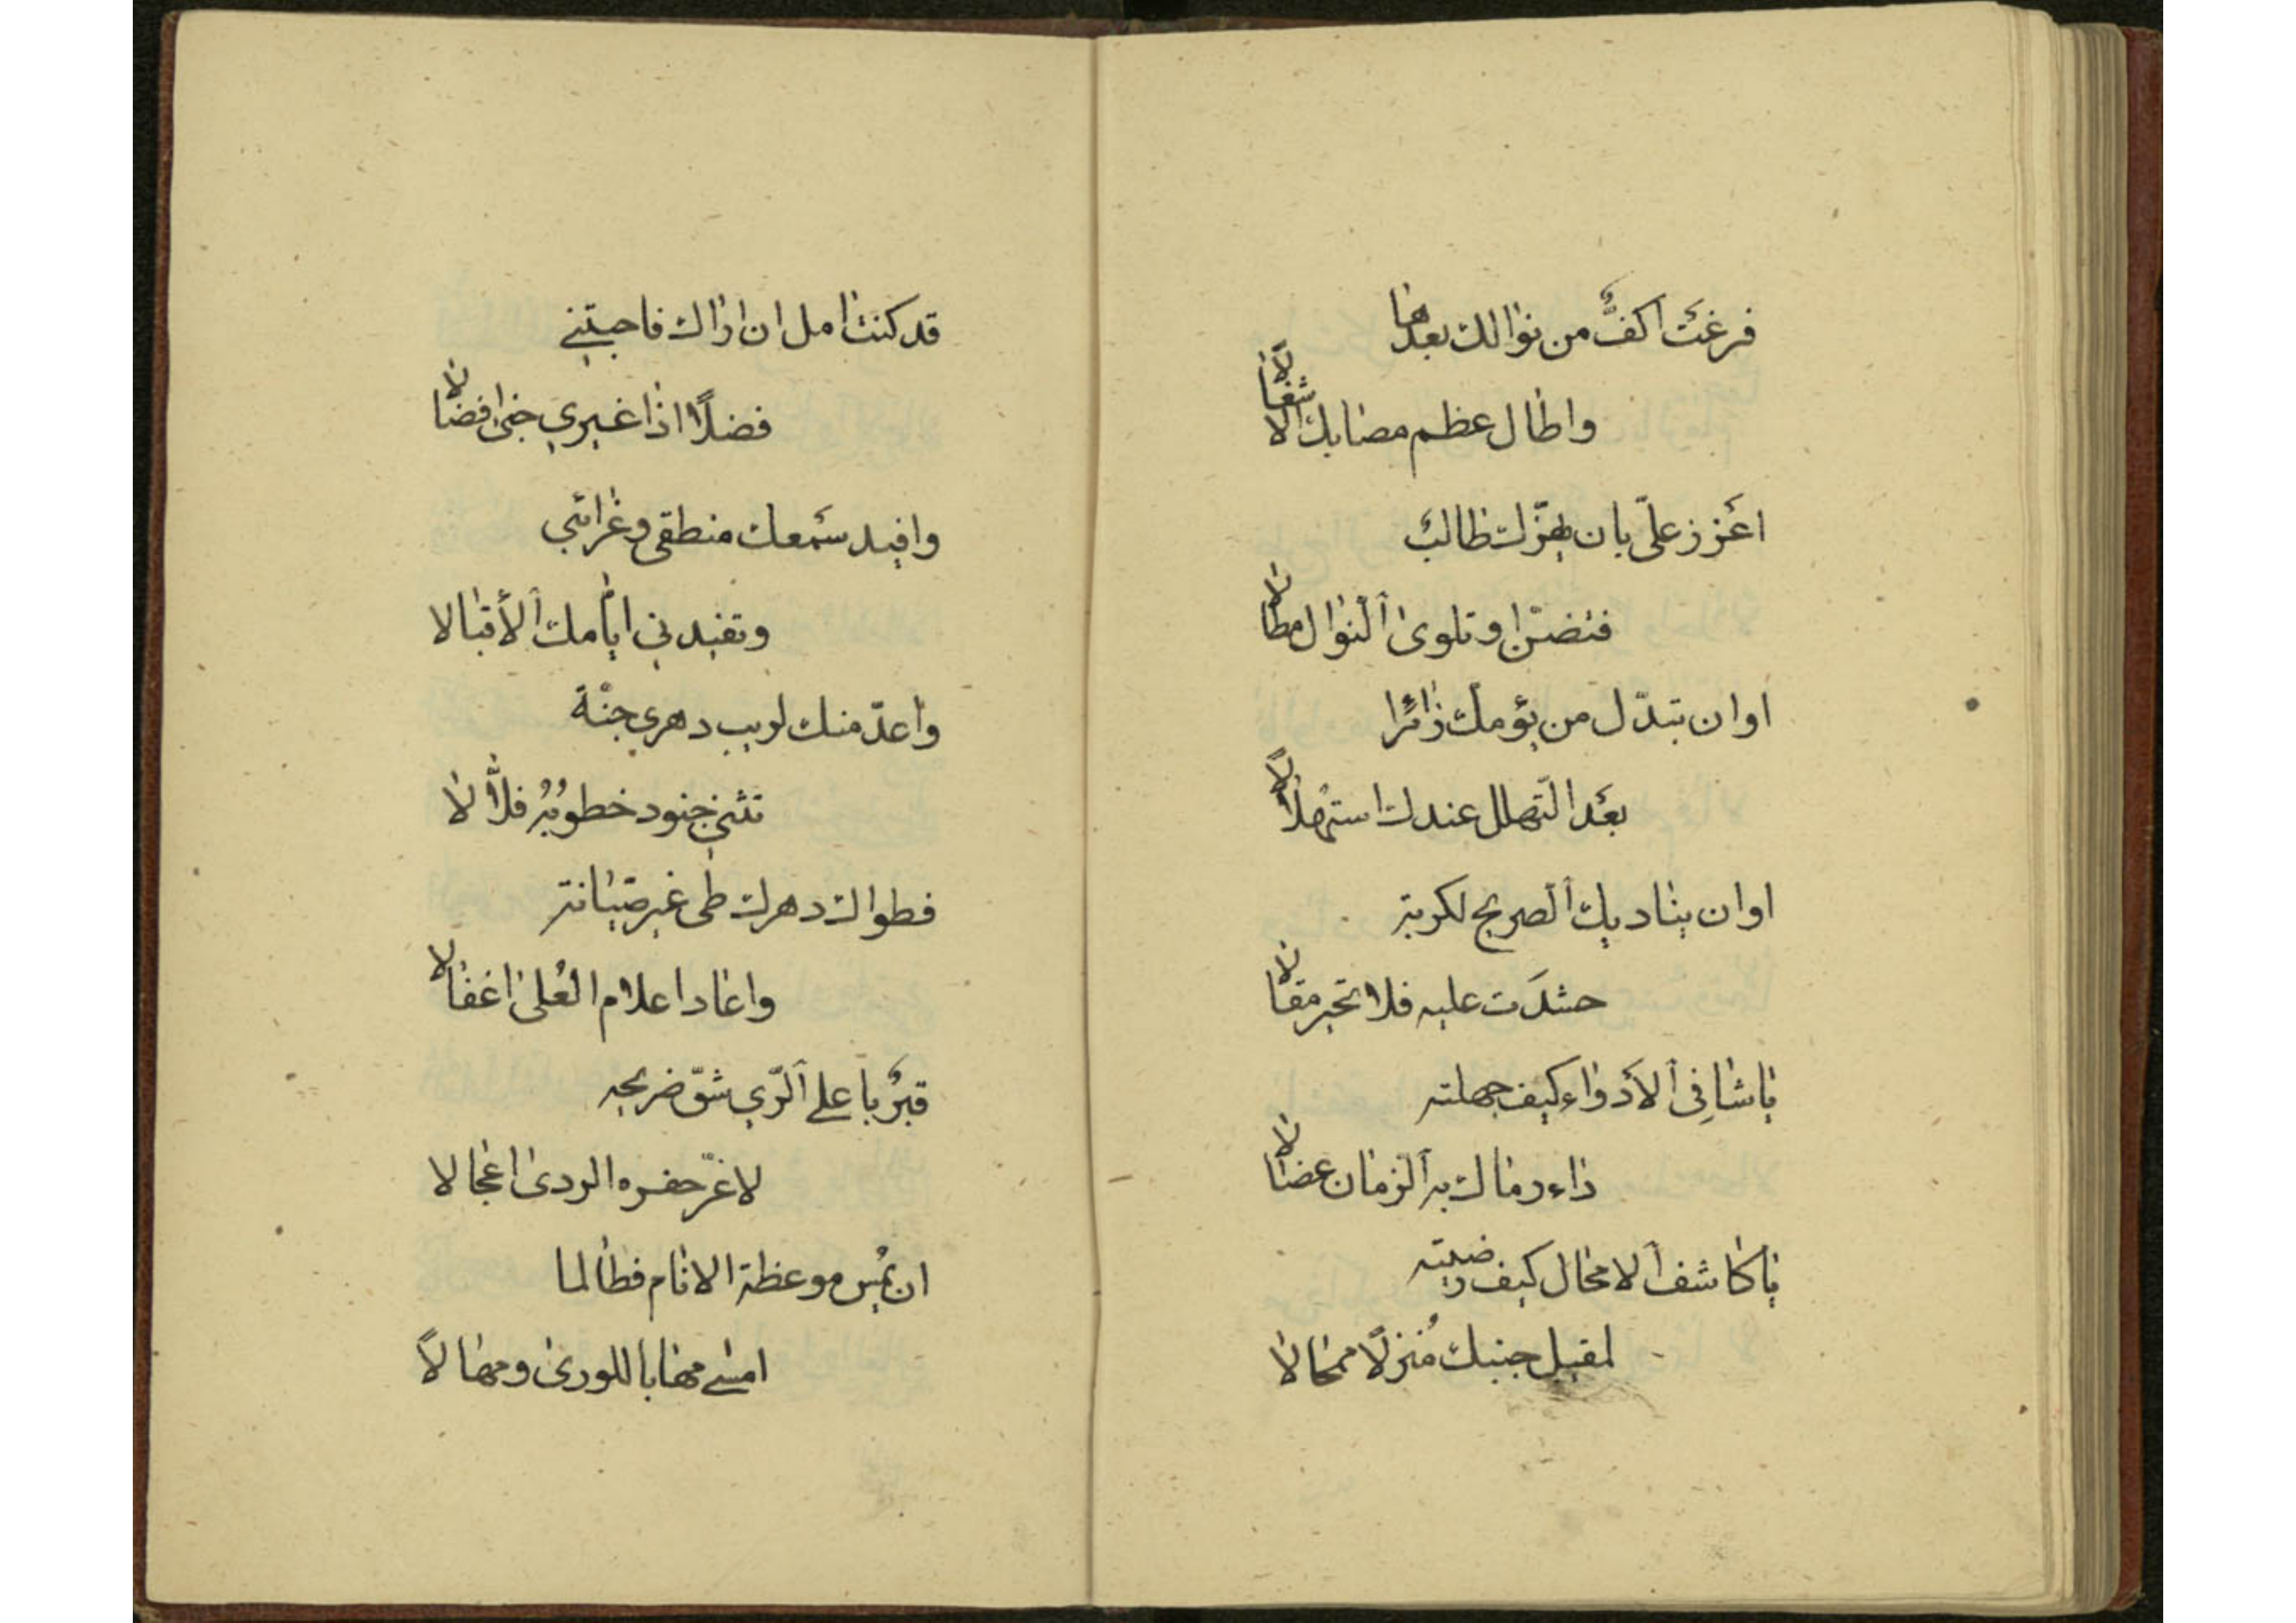 فرغَت اكفٌّ من نوالك بعدها
واطال عظم مصابك الاشغالا
اعزز عليّ بان يهزّك طالبٌ
فتضنّ او تلوى ٱلنوال مطالا
او ان تبدّل من يؤمك زائرًا
بعد التهلل عندك استهلالًا
او ان يناديك ٱلصريخ لكربة
حشدَت عليه فلا تحير مقالا
يا شافِى ٱلأدواء كيف جهلته
داء رماك به ٱلزمان عضالا
يا كاشف ٱلامحال كيف رضيته
لمقيل جنبك مُنزلًا ممحالا
قد كنت امل ان اراك فاجتني
فضلًا اذا غيري جنى افضالا
وافيد سمعك منطقى وغرائبي
وتفيدني ايامك ٱلأقبالا
واعدّ منك لريب دهري جنّة
تثني جنود خطوبُهُ فلّالا
فطواك دهرك طى غير صيانة
واعاد اعلام العُلى اغفالا
قبرٌ باعلى ٱلرّي شقّ ضريحه
لاغرّ حفزه الردى اعجالا
ان يمُس موعظة الانام فطالما
امسى مهابا للورى ومهالًا